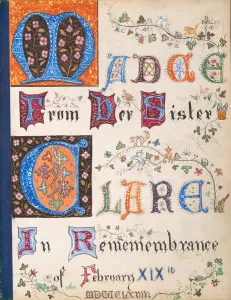 MADGE
From Her Sister
CLARE
In Rememembrance
of February XIXth